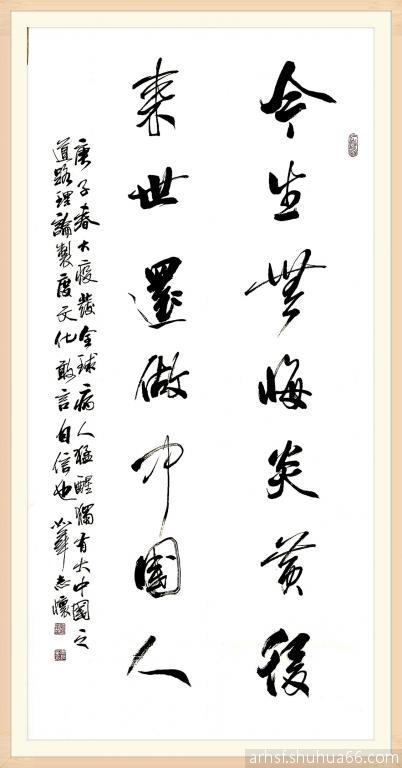 今生無悔炎黄後
来世還做中國人
庚子春大疫發全球病人猛醒獨有大中國之
道路理論製度文化敢言自信也 华志懷
arhsf.shuhua66.com